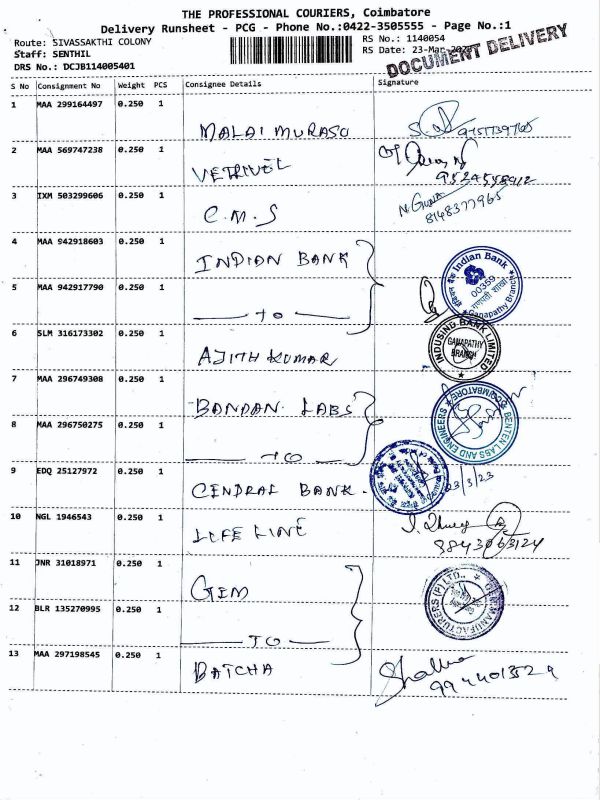 THE PROFESSIONAL COURIERS, Coimbatore
Delivery Runsheet - PCG - Phone No.:0422-3505555 - Page No.:1
Route: SIVASSAKTHI COLONY
RS No.: 1140054
Staff: SENTHIL
RS Date: 23-Mar-2023
DRS No.: DCJB114005401
DOCUMENT DELIVERY
S No Consignment No Weight PCS Consignee Details Signature
1 MAA 299164497 0.250 1
MALAI MURASU
2 MAA 569747238 0.250 1
VETRIVEL
9524598912
3 IXM 503299606 0.250 1
C.M.S
8148377965
4 MAA 942918603 0.250 1
INDIAN BANK
Indian Bank
00359
Ganapathy Branch
5 MAA 942917790 0.250 1
TO
6 SLM 316173302 0.250 1
AJITH KUMAR
INDUSIND BANK LIMITED
GANAPATHY
BRANCH
7 MAA 296749308 0.250 1
BANDAN LABS
BENTEN LABS AND ENGINEERS
COIMBATORE
8 MAA 296750275 0.250 1
TO
9 EDQ 25127972 0.250 1
CENDRAL BANK.
23/3/23
10 NGL 1946543 0.250 1
LIFE LINE
9843063124
11 JNR 31018971 0.250 1
GEM
MANUFACTURERS (P) LTD.,
12 BLR 135270995 0.250 1
TO
13 MAA 297198545 0.250 1
BATCHA
9944013529